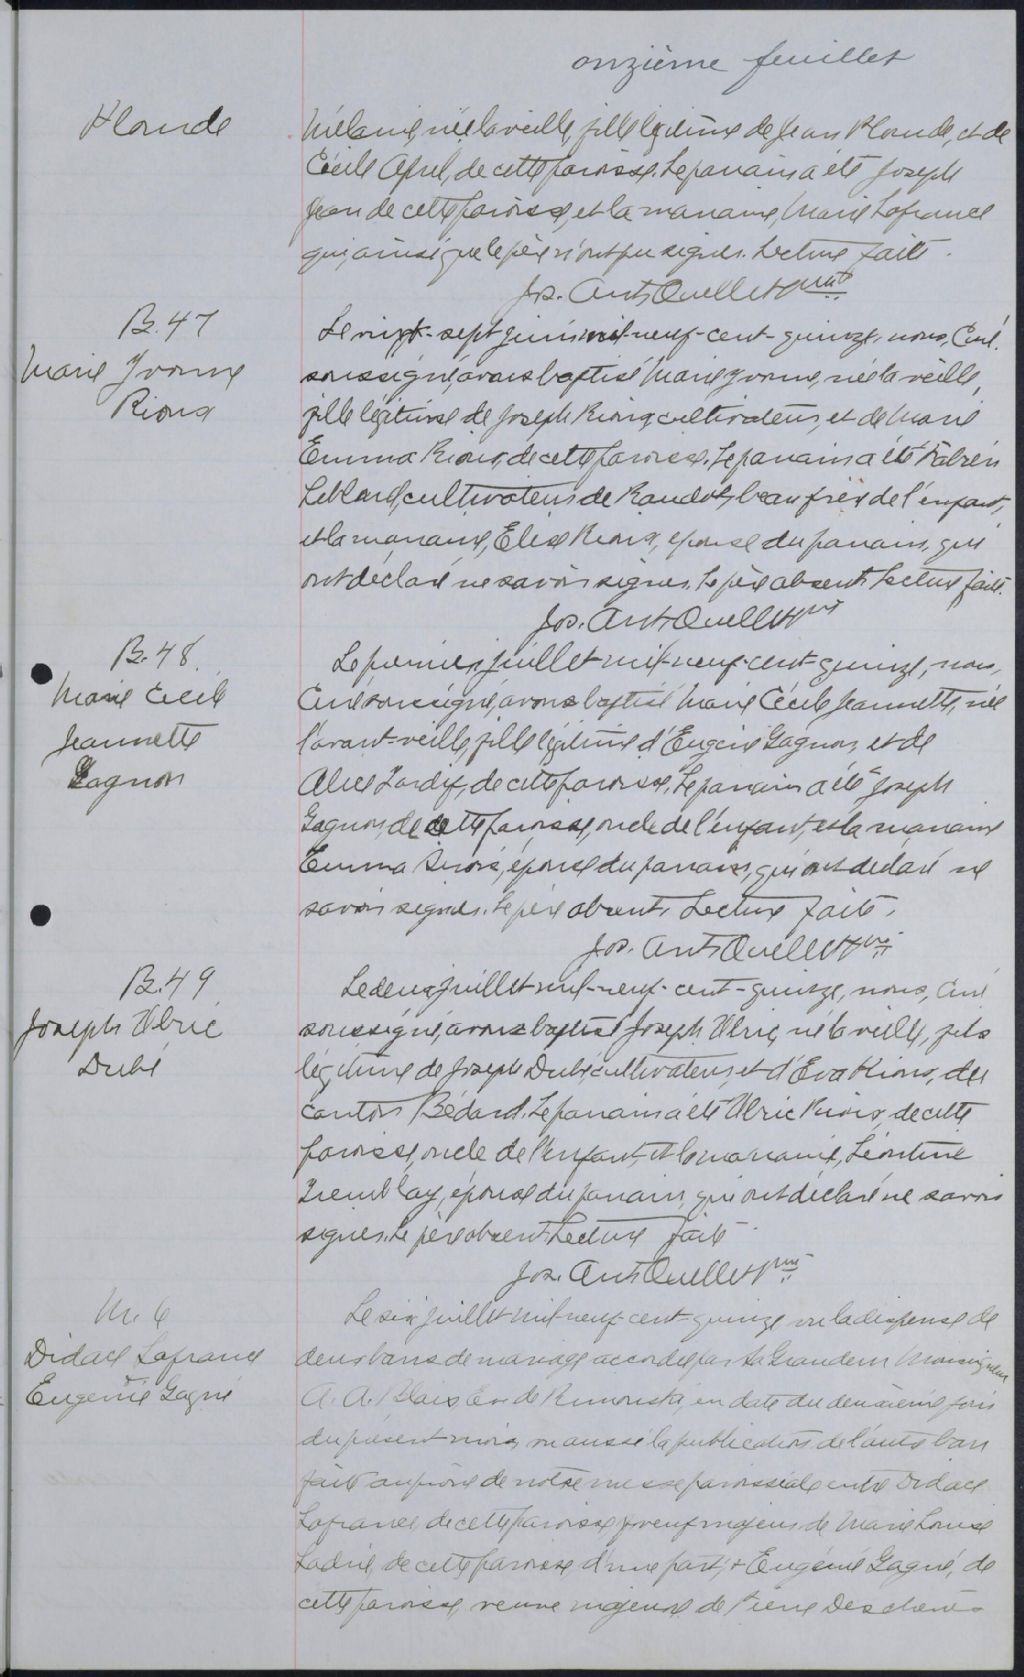 onzième feuillet
Plourde
Mélanie née la veille, fille légitime de Jean Plourde, et de
Cécile April, de cette paroisse. Le parrain a été Joseph
Jean de cette paroisse, et la marraine, Marie Lafrance
qui, ainsi que le père n'ont pu signer. Lecture faite.
Jos. Ant. Ouellet ptre
B. 47
Marie Yvonne
Rioux
Le vingt-sept juin mil-neuf-cent-quinze, nous, Curé
soussigné, avons baptisé Marie Yvonne, née la veille,
fille légitime de Joseph Rioux, cultivateur, et de Marie
Emma Rioux, de cette paroisse. Le parrain a été
Leblond, cultivateur de Raudot, beau frère de l'enfant,
et la marraine, Elise Rioux, épouse du parrain, qui
ont déclaré ne savoir signer. Le père absent. Lecture faite.
Jos. Ant. Ouellet ptre
B. 48
Marie Cécile
Jeannette
Gagnon
Le premier juillet mil-neuf-cent-quinze, nous,
Curé soussigné, avons baptisé Marie Cécile Jeannette, née
l'avant-veille, fille légitime d'Eugène Gagnon, et de
Alice Tardif, de cette paroisse. Le parrain a été Joseph
Gagnon, de cette paroisse, oncle de l'enfant, et la marraine
Emma Sirois, épouse du parrain, qui ont déclaré ne
savoir signer. Le père absent. Lecture faite.
Jos. Ant. Ouellet ptre
B. 49
Joseph Ulric
Dubé
Le deux juillet mil-neuf-cent-quinze, nous, Curé
soussigné, avons baptisé Joseph Ulric, né la veille, fils
légitime de Joseph Dubé, cultivateur, et d'Eva Rioux, du
canton Bédard. Le parrain a été Ulric Rioux, de cette
paroisse, oncle de l'enfant, et la marraine, Léontine
Tremblay, épouse du parrain, qui ont déclaré ne savoir
signer. Le père absent. Lecture faite
Jos. Ant. Ouellet ptre
M. 6
Didace Lafrance
Eugénie Gagné
Le six juillet mil-neuf-cent-quinze vu la dispense de
deux bans de mariage accordée par Sa Grandeur Monseigneur
A. A. Blais Ev. de Rimouski, en date du deuxième jour
du présent mois, vu aussi la publication de l'autre ban
faite au prône de notre messe paroissiale entre Didace
Lafrance de cette paroisse, veuf majeur de Marie Louise
de cette paroisse d'une part, & Eugénie Gagné, de
cette paroisse, veuve majeure de Pierre Deschênes